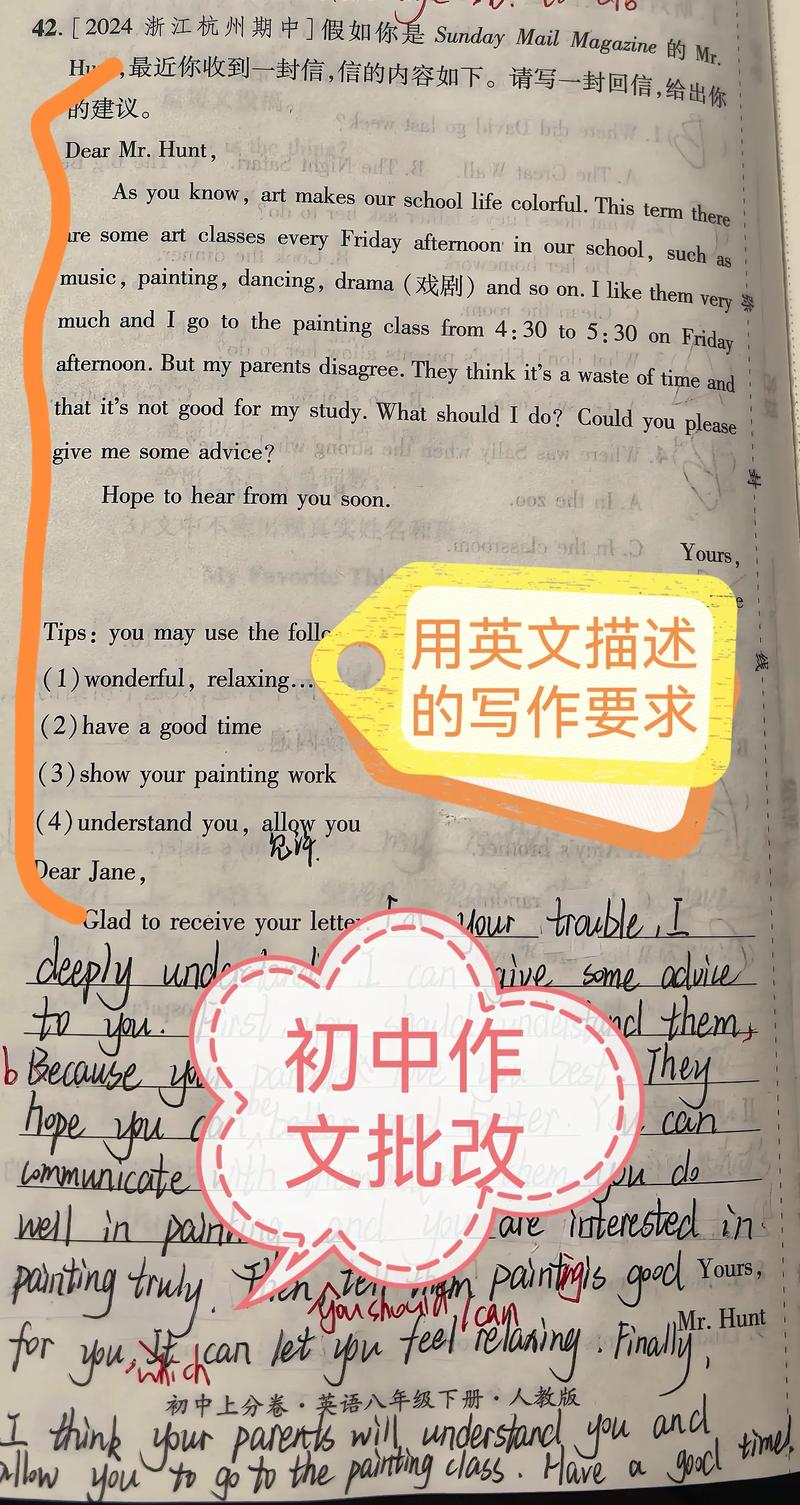 42. [2024 浙江杭州期中]假如你是 Sunday Mail Magazine 的 Mr.
,最近你收到一封信,信的内容如下。请写一封回信,给出你
的建议。
Dear Mr. Hunt,
As you know, art makes our school life colorful. This term there
are some art classes every Friday afternoon in our school, such as
music, painting, dancing, drama (戏剧) and so on. I like them very
much and I go to the painting class from 4:30 to 5:30 on Friday
afternoon. But my parents disagree. They think it's a waste of time and
that it's not good for my study. What should I do? Could you please
give me some advice?
Hope to hear from you soon.
Yours,
Tips: you may use the
用英文描述
的写作要求
(1)wonderful, relaxing…
(2)have a good time
(3)show your painting work
(4)understand you, allow you
允许.
Dear Jane,
Glad to receive your your trouble, I
deeply I can give some advice
to you. First, you should understand them,
b Because your parents love you best. They
hope you can be better and better. You can
初中作
文批改
communicate with them them you do
well in painting and you are interested in
painting truly. Then, tell them painting is good
you should can
Yours,
Mr. Hunt
for you, It can let you feel relaxing. Finally,
which
初中上分卷·英语八年级下册·人教版
I think your parents will understand you and
allow you to go to the painting class. Have a good time!
线